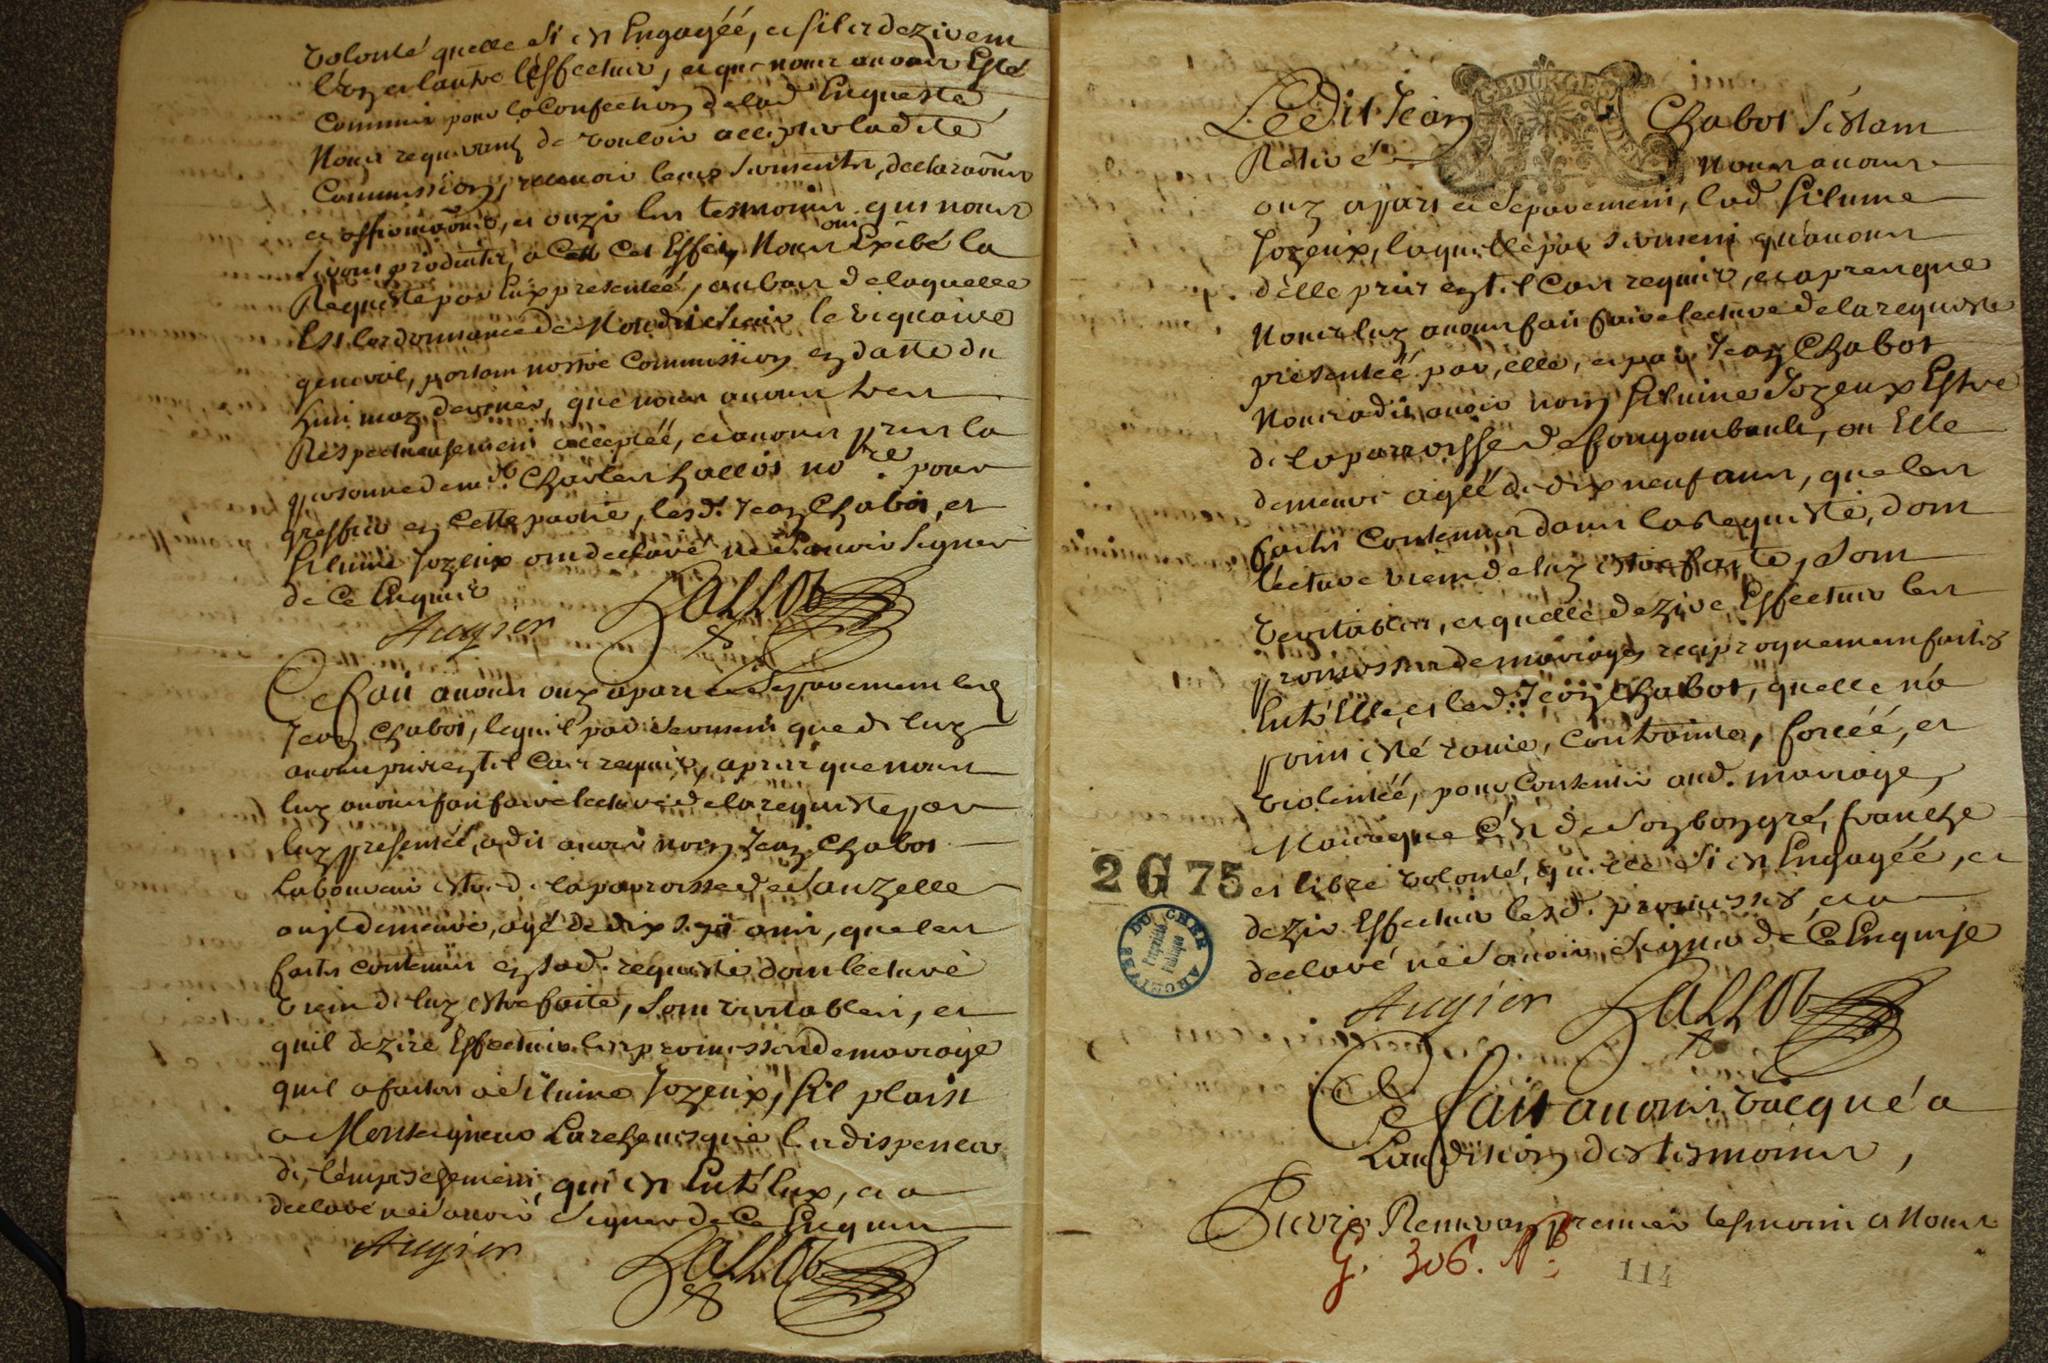 volonté quelle si est Engagée, et sil et dezirent
l'un et lautre l'Effectuer, et que nous avons Esté
Commis pour la Confection de lad. Enqueste,
Nous requerant de vouloir accepter ladite
Commission, recevoir leurs serments, declarations
et affirmations, et ouzir les tesmoins qui nous
seront produits, a cett Cet Effet, Nous ont Exibé la
Requeste par Eux presenteé, au bas de laquelle
Est lordonnance de Mondit sieur le viquaire
general, portant nostre Commission en datte du
huit may dernier, que nous avons veu
Respectueusement acceptée, et avons pris la
personne de me Charles Hallot nore pour
greffier en Cette partie, lesd. Jean Chabot, et
Silvine Jozeux ont declaré ne scavoir signer
de Ce Enquis
Augier Hallot
Ce fait avons ouy apart et separement led
Jean Chabot, lequel par serment que de luy
avons pris en tel Cas requis, apres que nous
luy avons fait faire lecture de la requeste par
luy presentée, a dit avoir nom Jean Chabot
Laboureur estre de la parroisse de Sauzelle
ou il demeure, agé de dix sept ans, que les
faits contenus en lad. requeste dont lecture
vient de luy estre faite, sont veritables, et
quil dezire Effectuer les promesses de mariage
quil a faites a Silvine Jozeux, sil plaist
a Monseigneur Larchevesque les dispencer
de l'empeschement, qui est Entr'Eux, et a
declaré ne scavoir signer de Ce Enquis
Augier Hallot
BOURGES
Ledit Jean Chabot s'estant
Retiré Nous avons
ouy apart et separement, lad Silvine
Jozeux, laquelle par serment qu'avons
d'elle pris en tel Cas requis, et apres que
Nous luy avons fait faire lecture de la requeste
presenteé par, elle, et par Jean Chabot
Nous a dit avoir nom Silvine Jozeux Estre
de la parroisse de fongombault, ou Elle
demeure agéé de dix neuf ans, que les
faits Contenus dans la Requeste, dont
lecture vient de luy estre faite, sont
veritables, et quelle dezire Effectuer les
promesses de mariage reciproquement faites
Entr'Elle, et led. Jean Chabot, quelle n'a
point esté ravie, contrainte, forcéé, et
violentéé, pour Consentir aud. mariage,
Mais que C'est de son bon gré, franche
et libre volonté, qu'elle si est Engagéé, et
dezir Effectuer lesd. promesses, et a
declaré ne scavoir signer de Ce Enquise
2 G 75
ARCHIVES DU CHER
Propriété
Publique
Augier Hallot
Ce fait avons vacqué a
Laudition des tesmoins,
premier tesmoin a Nous
G. 306. No.
114